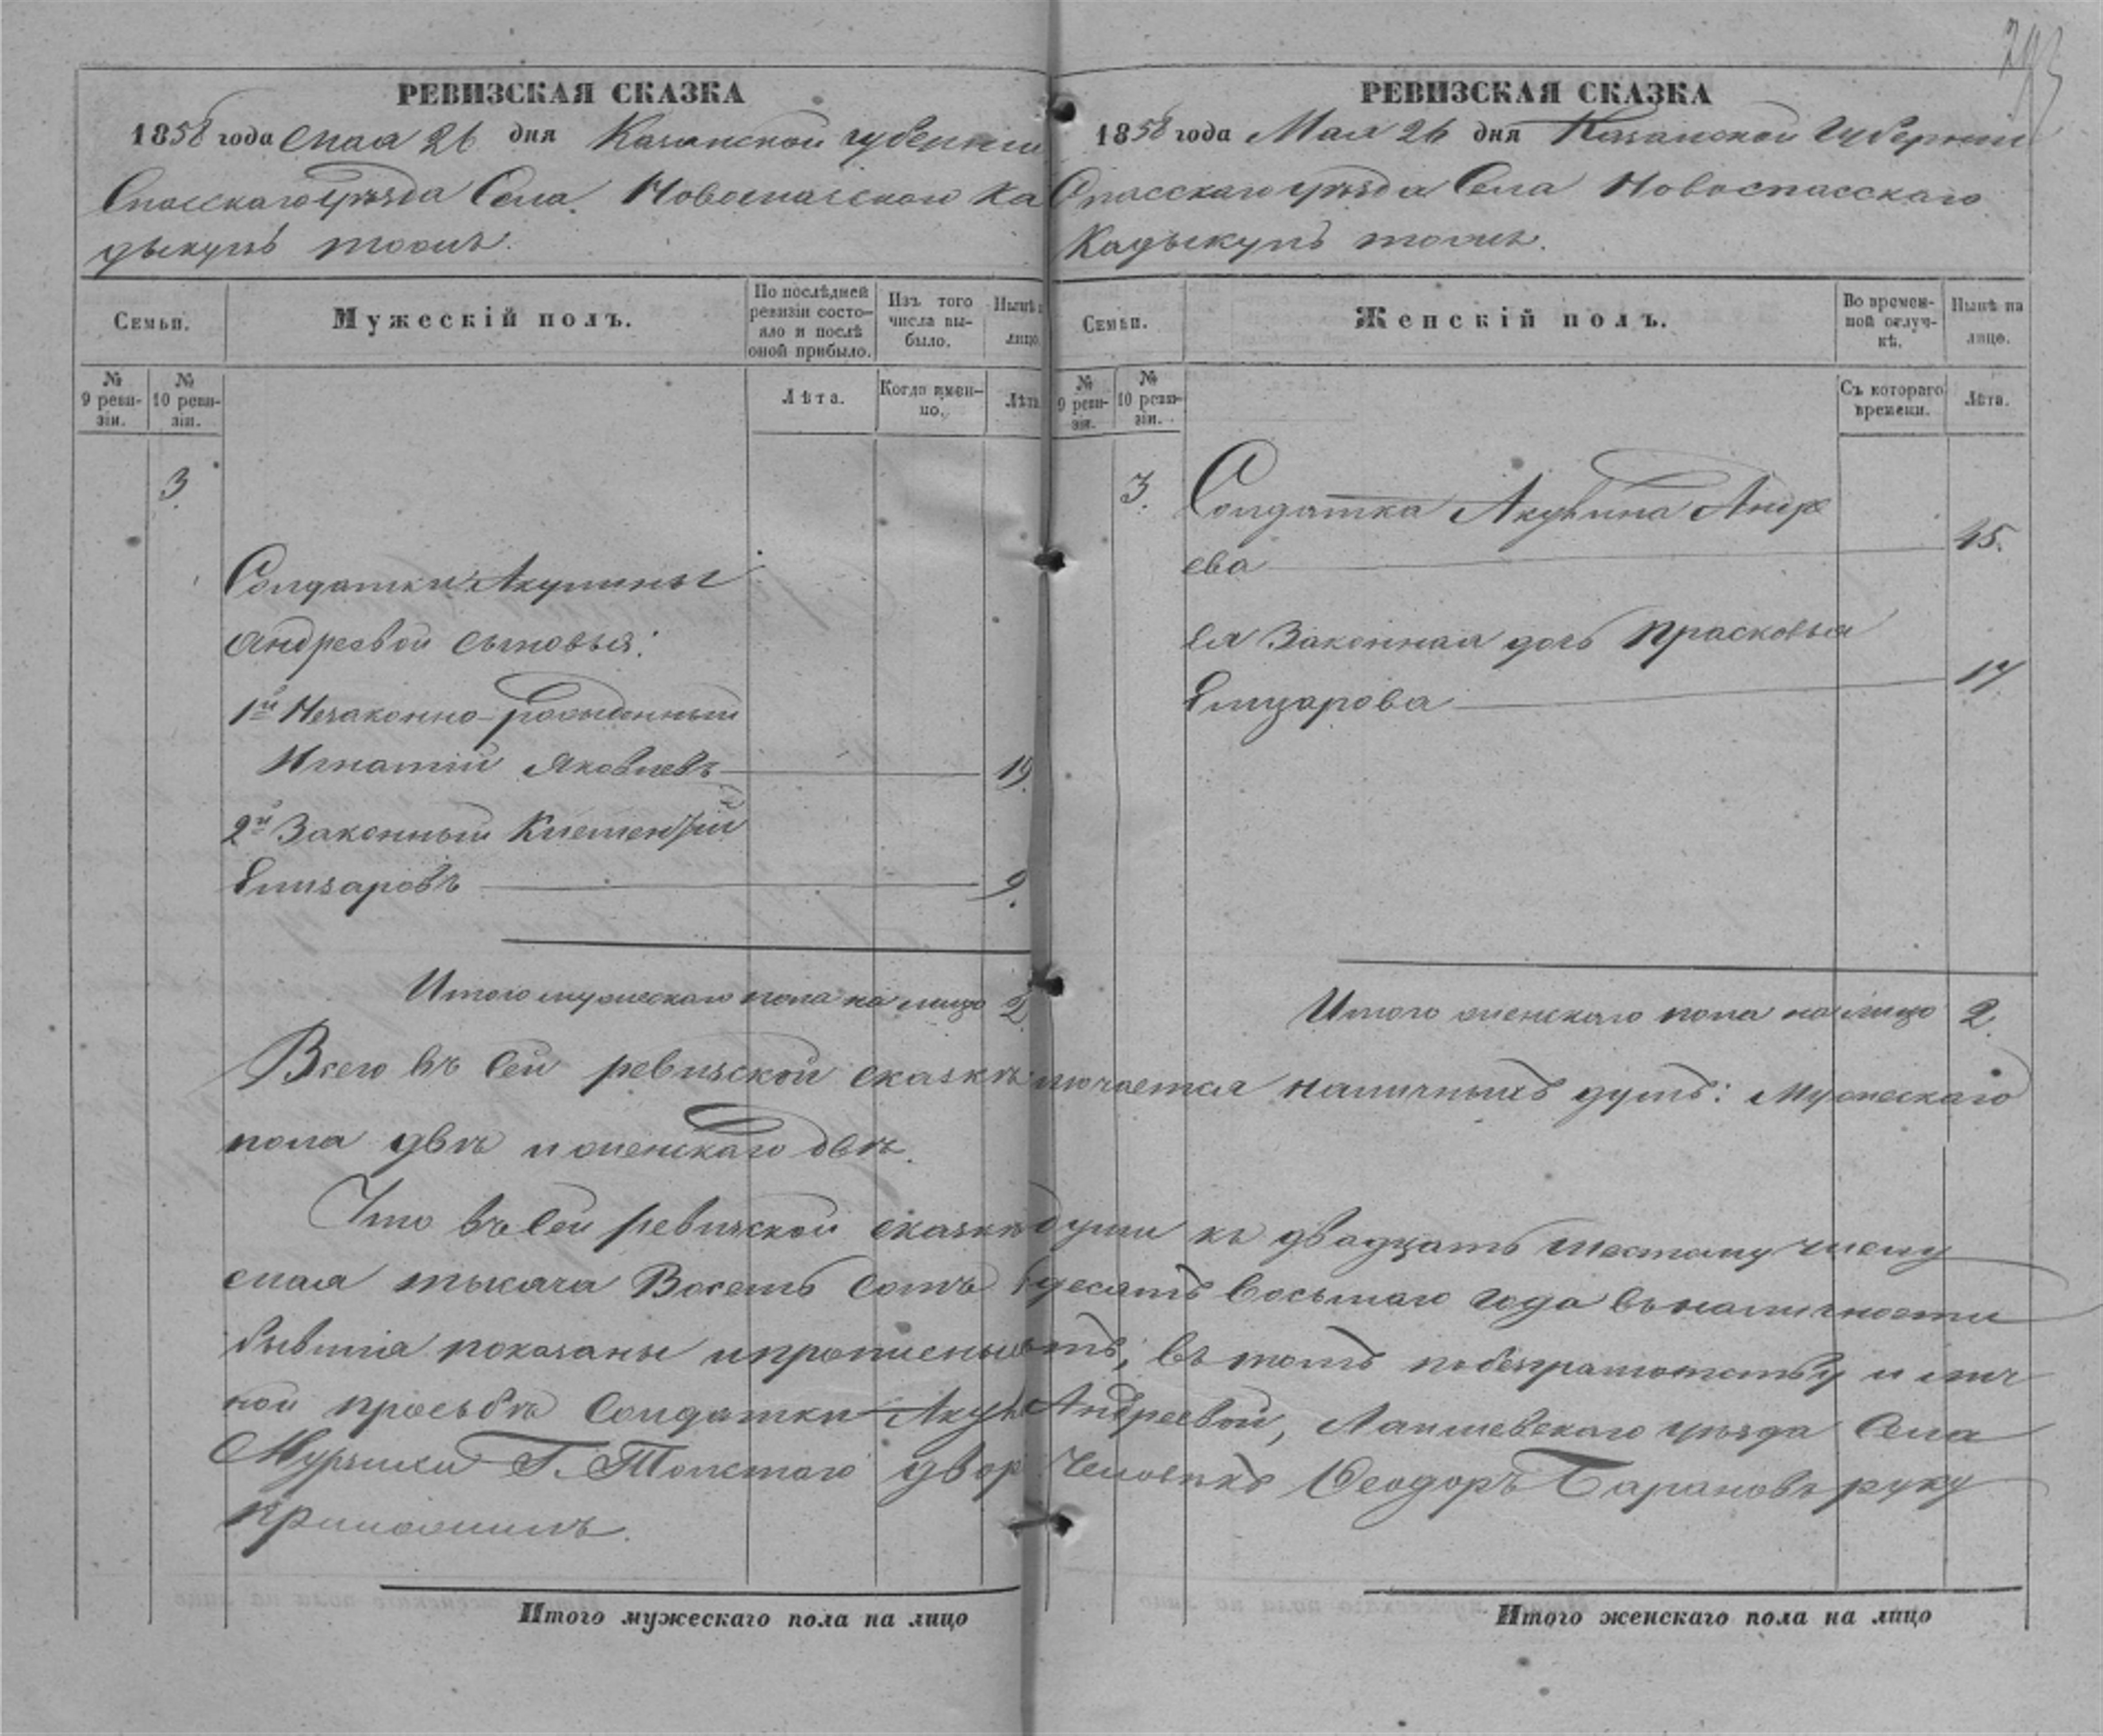 293
РЕВИЗСКАЯ СКАЗКА
1858 года Мая 26 дня Казанской губернии
Спасскаго уѣзда Села Новоспасскаго Ка
дыкупъ тожъ.
Семьи.
Мужескій полъ.
По послѣдней ревизіи состояло и послѣ оной прибыло.
Изъ того числа выбыло.
Нынѣ
лицо.
№ 9 ревизіи.
№ 10 ревизіи.
Лѣта.
Когда именно.
Лѣта
3
Солдатки Акулины
Андреевой сыновья:
1й Незаконно-рожденный
Игнатій Яковлевъ 19.
2й Законный Климентій
Елизаровъ 9.
Итого мужескаго пола на лицо 2
РЕВИЗСКАЯ СКАЗКА
1858 года Мая 26 дня Казанской Губерніи
Спасскаго уѣзда Села Новоспасскаго
Кадыкупъ тожъ.
Семьи.
Женскій полъ.
Во временной отлучкѣ.
Нынѣ на лицо.
№ 9 ревизіи.
№ 10 ревизіи.
Съ котораго времени.
Лѣта.
3.
Солдатка Акулина Андре
ева 45.
Ея Законная дочь Прасковья
Елизарова 17
Итого женскаго пола на лицо 2.
Всего въ сей ревизской сказкѣ наличныхъ душъ: Мужескаго
пола двѣ и женскаго двѣ.
Что въ сей ревизской сказкѣ души къ двадцать шестому числу
мая тысяча Восемь сотъ десятъ восьмаго года въ наличности
бывшія показаны и прописныхъ въ томъ по безграмотству и лич
ной просьбѣ Солдатки Андреевой, Лаишевскаго уѣзда Села
Мурзихи Г. Толстаго двор Человѣкъ Ѳеодоръ Барановъ руку
приложилъ.
Итого мужескаго пола на лицо
Итого женскаго пола на лицо